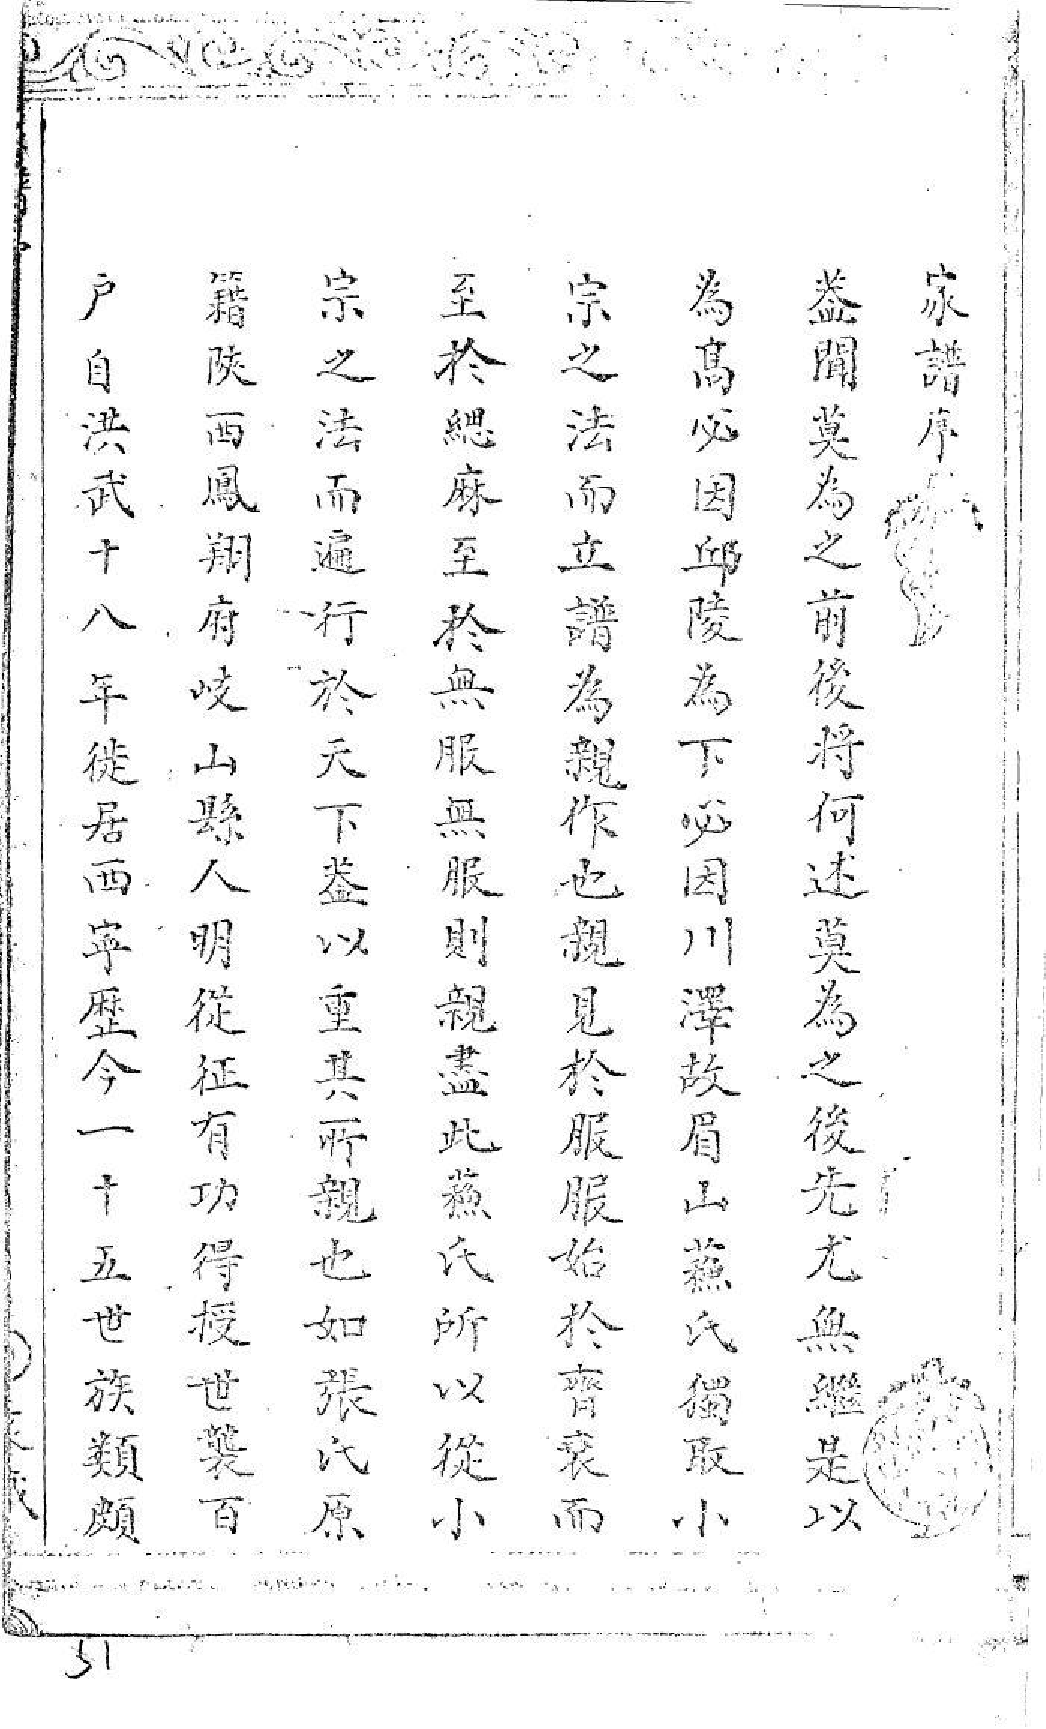 家譜序
葢聞莫為之前後將何述莫為之後先尤無繼是以
為髙必因邱陵為下必因川澤故眉山蘓氏獨取小
宗之法而立譜為親作也親見於服服始於齊衰而
至於緦麻至於無服無服則親盡此蘓氏所以從小
宗之法而遍行於天下葢以重其所親也如張氏原
籍陝西鳳翔府岐山縣人明從征有功得授世襲百
户自洪武十八年徙居西寧歷今一十五世族類頗
51